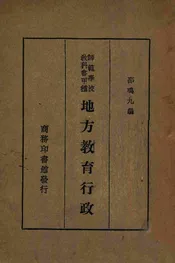 邵鳴九編
師範學校
教科書甲種
地方教育行政
商務印書館發行